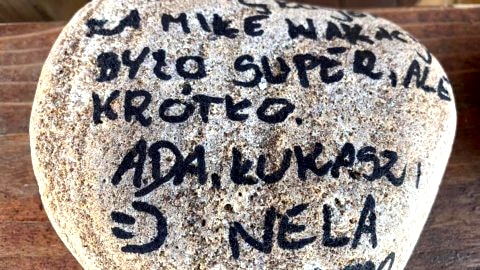 ZA MIŁE
BYŁO SUPER, ALE
KRÓTKO.
ADA, ŁUKASZ,
=) NELA